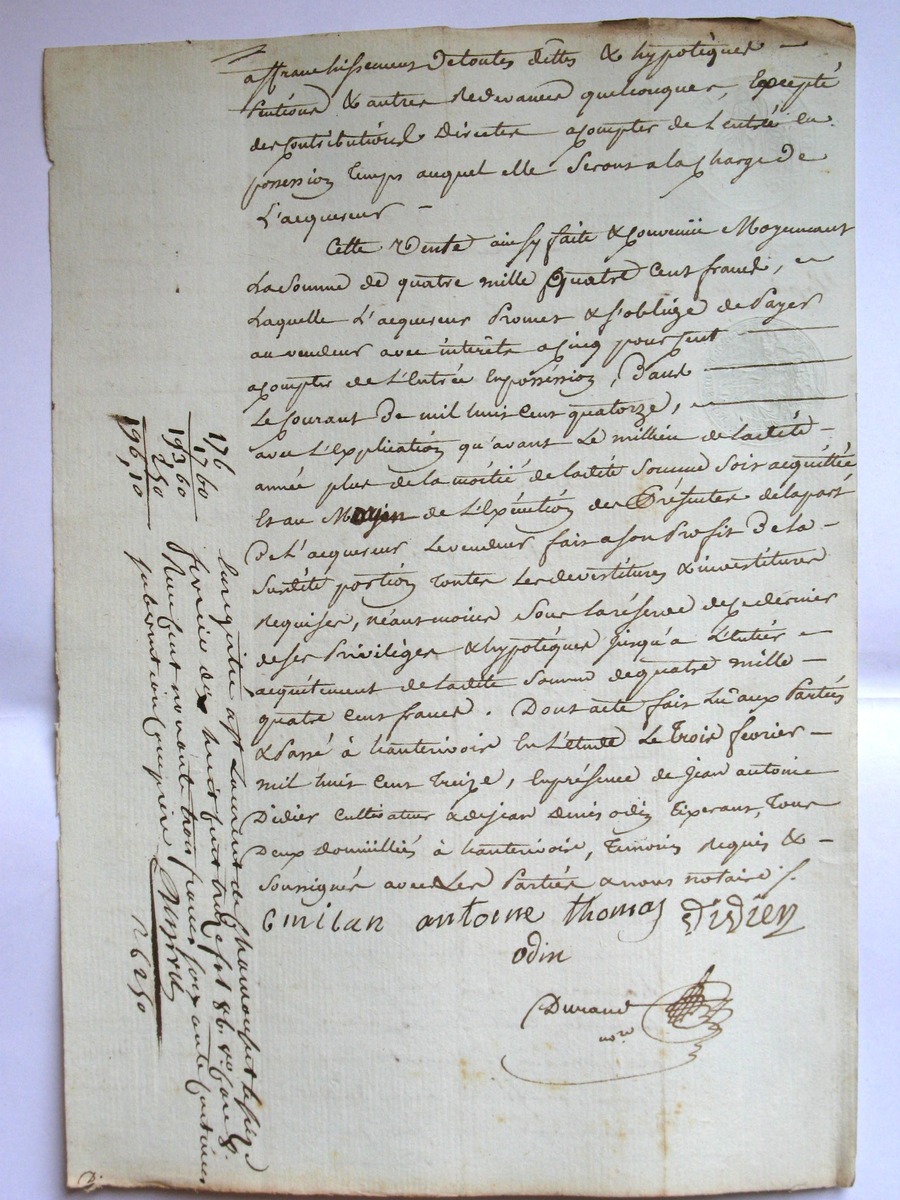 affranchissement de toutes dettes & hypotèques —
pentions & autres Redevances quelconques, Excepté
des Contributions Directes acompter de L'entrée en
possession temps auquel elle Seront a la Charge de
L'acquereur —
Cette Vente ainsy faite & Convenüe Moyennant
La Somme de quatre mille quatre Cent francs, —
Laquelle L'acquereur Promet & s'oblige de Payer
au vendeur avec interêts a Cinq pour Cent
acompter de L'Entrée En possession, Dans
Le Courant De mil huit Cent quatorze, —
avec L'Explication qu'avant Le millieu de ladite —
année plus de la moitié de ladite Somme Soit acquittée
Et au Moyen de L'Exécution des Présentes de la part
De L'acquereur Le vendeur fait a Son Profit De la —
Susdite portion toutes Les devestitures & investitures
Requises, néantmoins Sous la réserve de ce dernier
de ses Privilèges & hypotèques jusqu'à L'entier —
acquitement de ladite Somme de quatre mille —
quatre Cent francs. Dont acte fait Lû aux Parties
& Passé à hauterivoire En L'étude Le Trois février —
mil huit Cent Treize, En présence de Jean antoine
Didier Cultivateur & de Jean Denis odin Tixerant, Tous
Deux Domiciliés à hauterivoire, Temoins Requis & —
Soussignés avec Les Parties & nous notaire /.
Emilan antoine thomas Didier
odin
Durand
nore
176
1760
193,60
2,50
196,10
Enregistré a St Laurent de Chamousset le seize
fevrier dix huit cent treize fol 86. vo Case 8.
Reçu cent nonante trois francs soixante centimes
subvention comprise